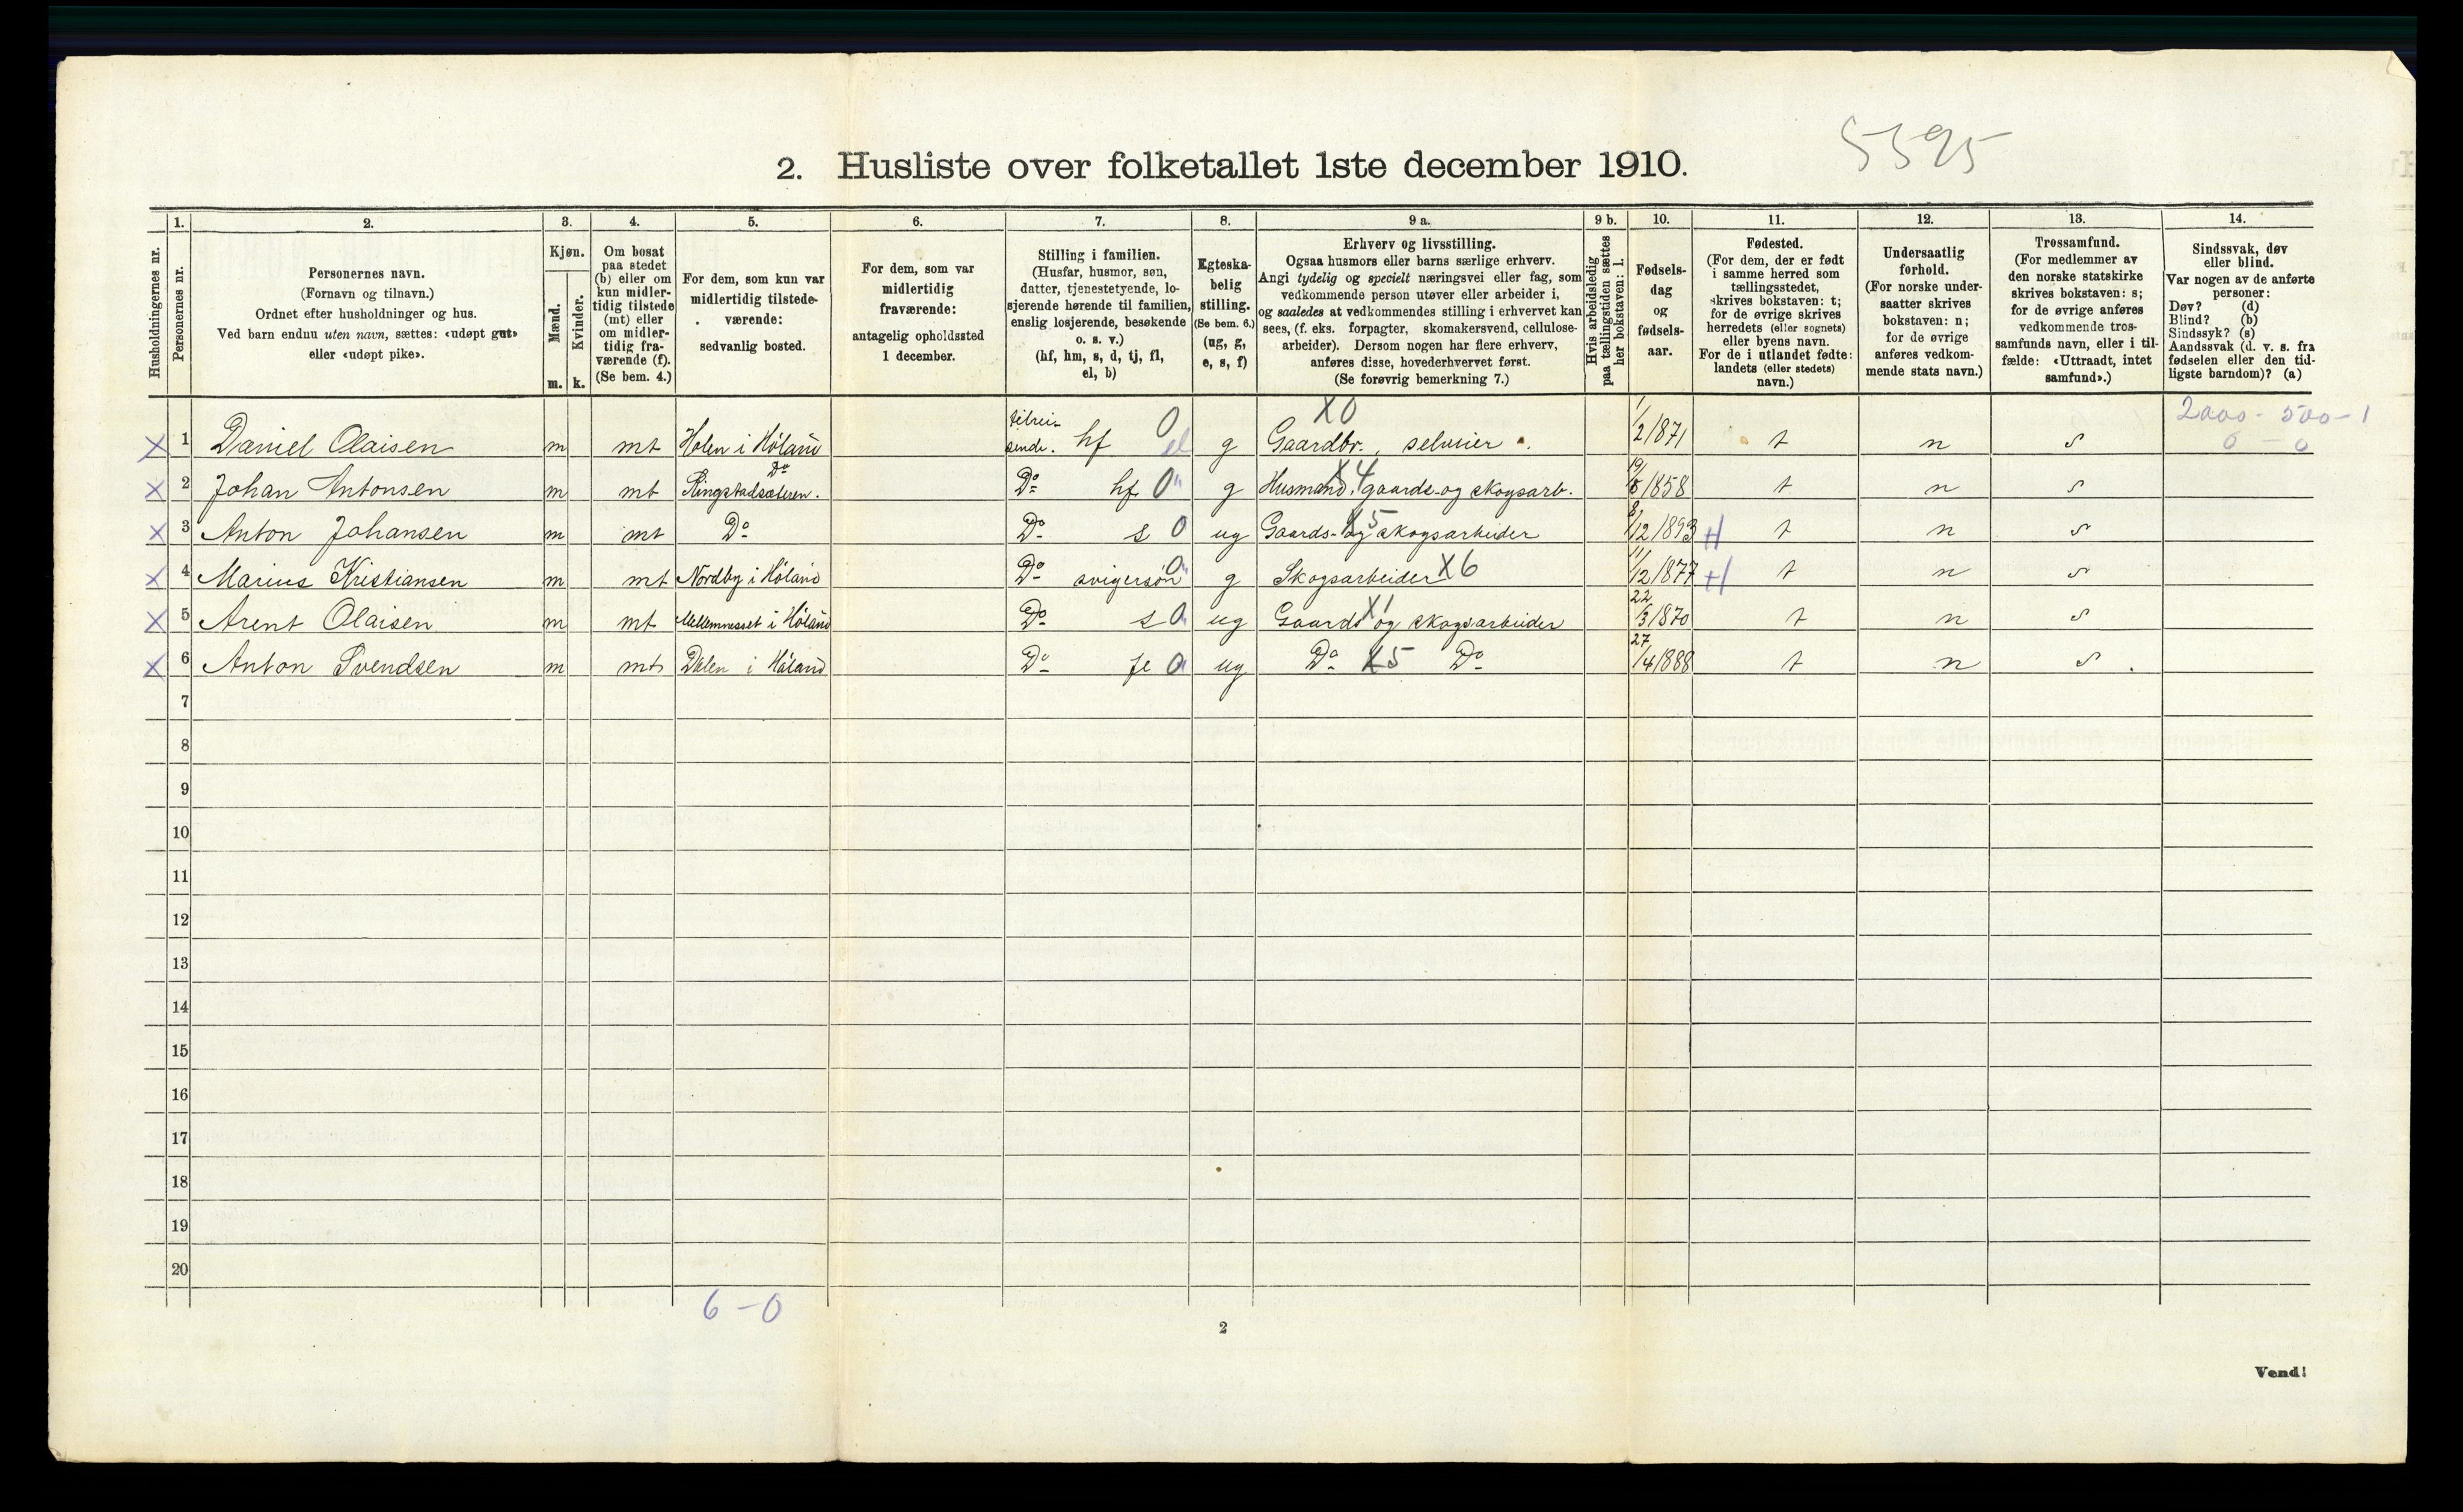 5395
2. Husliste over folketallet 1ste december 1910.
1. 2. 3. 4. 5. 6. 7. 8. 9 a. 9 b. 10. 11. 12. 13. 14.
Husholdningernes nr.
Personernes nr.
Personernes navn.
(Fornavn og tilnavn.)
Ordnet efter husholdninger og hus.
Ved barn endnu uten navn, sættes: «udøpt gut»
eller «udøpt pike».
Kjøn.
Mænd.
Kvinder.
m. k.
Om bosat
paa stedet
(b) eller om
kun midler-
tidig tilstede
(mt) eller
om midler-
tidig fra-
værende (f).
(Se bem. 4.)
For dem, som kun var
midlertidig tilstede-
værende:
sedvanlig bosted.
For dem, som var
midlertidig
fraværende:
antagelig opholdssted
1 december.
Stilling i familien.
(Husfar, husmor, søn,
datter, tjenestetyende, lo-
sjerende hørende til familien,
enslig losjerende, besøkende
o. s. v.)
(hf, hm, s, d, tj, fl,
el, b)
Egteska-
belig
stilling.
(Se bem. 6.)
(ug, g,
e, s, f)
Erhverv og livsstilling.
Ogsaa husmors eller barns særlige erhverv.
Angi tydelig og specielt næringsvei eller fag, som
vedkommende person utøver eller arbeider i,
og saaledes at vedkommendes stilling i erhvervet kan
sees, (f. eks. forpagter, skomakersvend, cellulose-
arbeider). Dersom nogen har flere erhverv,
anføres disse, hovederhvervet først.
(Se forøvrig bemerkning 7.)
Hvis arbeidsledig
paa tællingstiden sættes
her bokstaven: l.
Fødsels-
dag
og
fødsels-
aar.
Fødested.
(For dem, der er født
i samme herred som
tællingsstedet,
skrives bokstaven: t;
for de øvrige skrives
herredets (eller sognets)
eller byens navn.
For de i utlandet fødte:
landets (eller stedets)
navn.)
Undersaatlig
forhold.
(For norske under-
saatter skrives
bokstaven: n;
for de øvrige
anføres vedkom-
mende stats navn.)
Trossamfund.
(For medlemmer av
den norske statskirke
skrives bokstaven: s;
for de øvrige anføres
vedkommende tros-
samfunds navn, eller i til-
fælde: «Uttraadt, intet
samfund».)
Sindssvak, døv
eller blind.
Var nogen av de anførte
personer:
Døv? (d)
Blind? (b)
Sindssyk? (s)
Aandssvak (d. v. s. fra
fødselen eller den tid-
ligste barndom)? (a)
2000 - 500 - 1
0 - 0
X 1 Daniel Olaisen m mt Holen i Høland tilrei-sende. hf 0 el g Gaardbr., selveier X0 1/2/871 t n s
X 2 Johan Antonsen m mt Ringstadsæteren. Do Do hf 0 g Husmand, gaards- og skogsarb. X4 19/5/858 t n s
X 3 Anton Johansen m mt Do Do s 0 ug Gaards- og skogsarbeider X5 8/12/893 t n s
X 4 Marius Kristiansen m mt Nordby i Høland Do svigersøn 0 g Skogsarbeider X6 11/12/877 t n s
X 5 Arent Olaisen m mt Mellemnesset i Høland Do s 0 ug Gaards og skogsarbeider X1 22/3/870 t n s
X 6 Anton Svendsen m mt Dalen i Høland Do fl 0 ug Do X5 Do 27/4/888 t n s
7
8
9
10
11
12
13
14
15
16
17
18
19
20
6 - 0
2
Vend!